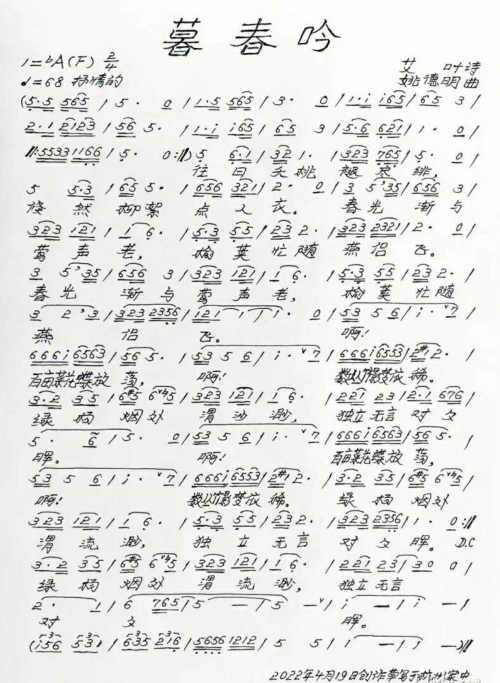 暮春吟
1=♭A(F) 2/4
艾 叶诗
♩=68 抒情的
姚德明曲
(5·5 565 | 5· 0 | 1·5 565 | 3· 0 | 1·i i65 | 65 3 |
2·1 2123 | 56 5· | 1·i i65 | 65 3 | 5·6 621 | 1· 0 |
‖:5533 1166 | 5· 0:‖) 5 6·1 | 32 1· | 323 765 | 5· 0 |
往日头桃
5 5·3 | 65 5· | 656 321 | 2· 0 | 3 5·35 | 656 3 |
柳絮 点人衣。 春光 渐与
323 121 | 1 6· | 5·3 55 | 23 2· | 323 2321 | 2· 0 |
莺声老, 忙随 燕侣飞。
3 5·35 | 656 3 | 323 121 | 1 6· | 5·3 55 | 23 2· |
春光 渐与 莺声老, 忙随
3 2·3 | 323 2356 | i21 1 | 1 0 | 53 5 6 | i· 7 |
燕 侣 飞。 啊!
666i 6563 | 56 5· | 53 5 6 | i· 7 | 666i 6553 | 2#1 2· |
放荡, 啊! 放稀。
3·2 35 | 6#5 6 5 | 323 121 | 1 6· | 221 23 | 2·1 676 |
绿杨 烟外 渭沙渺, 独立无言 对夕
5· 6 | 5· 0 | 53 5 6 | i· 7 | 666i 6563 | 56 5· |
晖。 啊! 放荡,
53 5 6 | i· 7 | 666i 6553 | 2#1 2· | 3·2 35 | 6#5 6 5 |
啊! 放稀。 绿杨 烟外
323 121 | 1 6· | 5·3 55 | 23 2· | 323 2356 | 1· 0 :‖
渭流渺, 独立无言 对夕晖。 D.C
3·2 35 | 6#5 6 5 | 323 121 | 1 6· | 221 23 | 30 0 |
绿杨 烟外 渭流渺, 独立无言
2· 1 | 6 765 | 5 — | 5 — | i — | i — |
对 夕 晖。
(i56 53 | 635 216 | 5656 1212 | 5 5 | i — | i —)‖
2022年4月19日创作